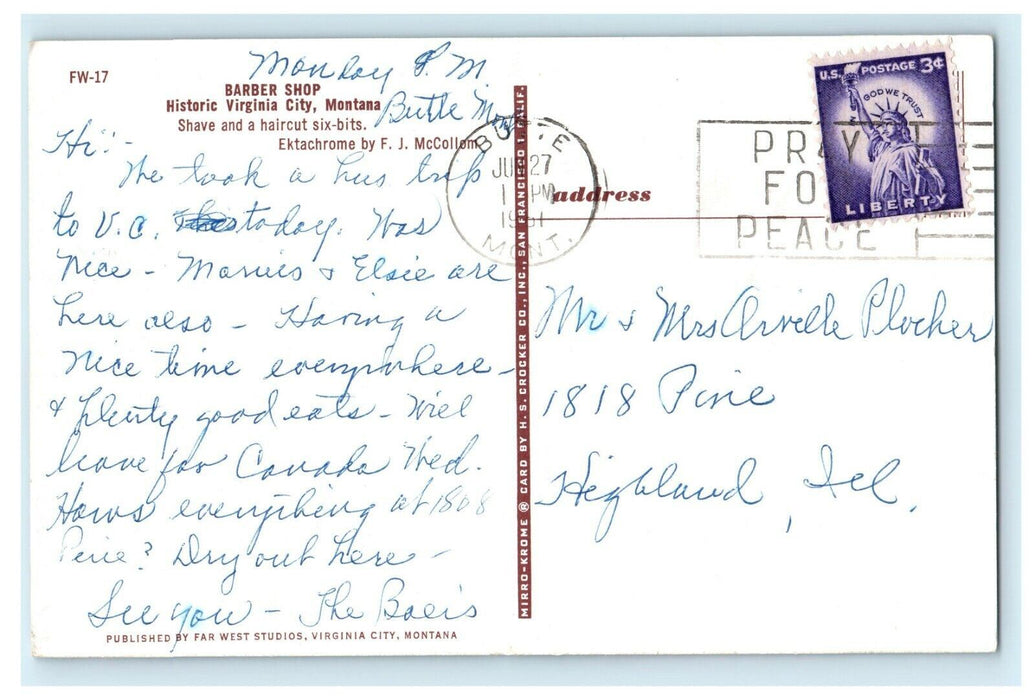 FW-17
Monday P.M
BARBER SHOP
Historic Virginia City, Montana
Butte Mont
Shave and a haircut six-bits.
Ektachrome by F. J. McCollom
Hi:-
We took a bus trip
to V.C. today. Was
nice - & Elsie are
here also - Having a
nice time everywhere -
& plenty good eats - Will
leave for Canada Wed.
Hows everything at 1808
Pine? Dry out here -
See you - The
PUBLISHED BY FAR WEST STUDIOS, VIRGINIA CITY, MONTANA
MIRRO-KROME ® CARD BY H. S. CROCKER CO., INC., SAN FRANCISCO 1, CALIF.
BUTTE
27
PM
1961
MONT.
address
PRAY
FOR
PEACE
U.S. POSTAGE 3¢
IN GOD WE TRUST
LIBERTY
Mr & Mrs Orville Plocher
1818 Pine
Highland, Ill.